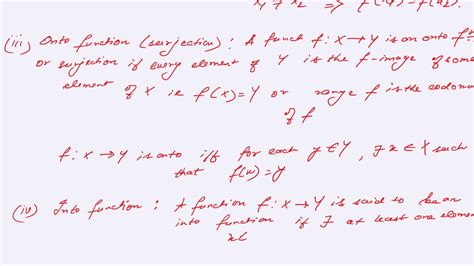 x₁ ≠ x₂ => f(x₁) = f(x₂).
(iii) Onto function (surjection) : A funct f: X→Y is an onto fⁿ
or surjection if every element of Y is the f-image of some
element of X ie f(X)=Y or range f is the codomain
of f
f: X→Y is onto iff for each y∈Y, ∃ x∈X such
that f(x)=y
(iv) Into function : A function f: X→Y is said to be an
into function if ∃ at least one element
x